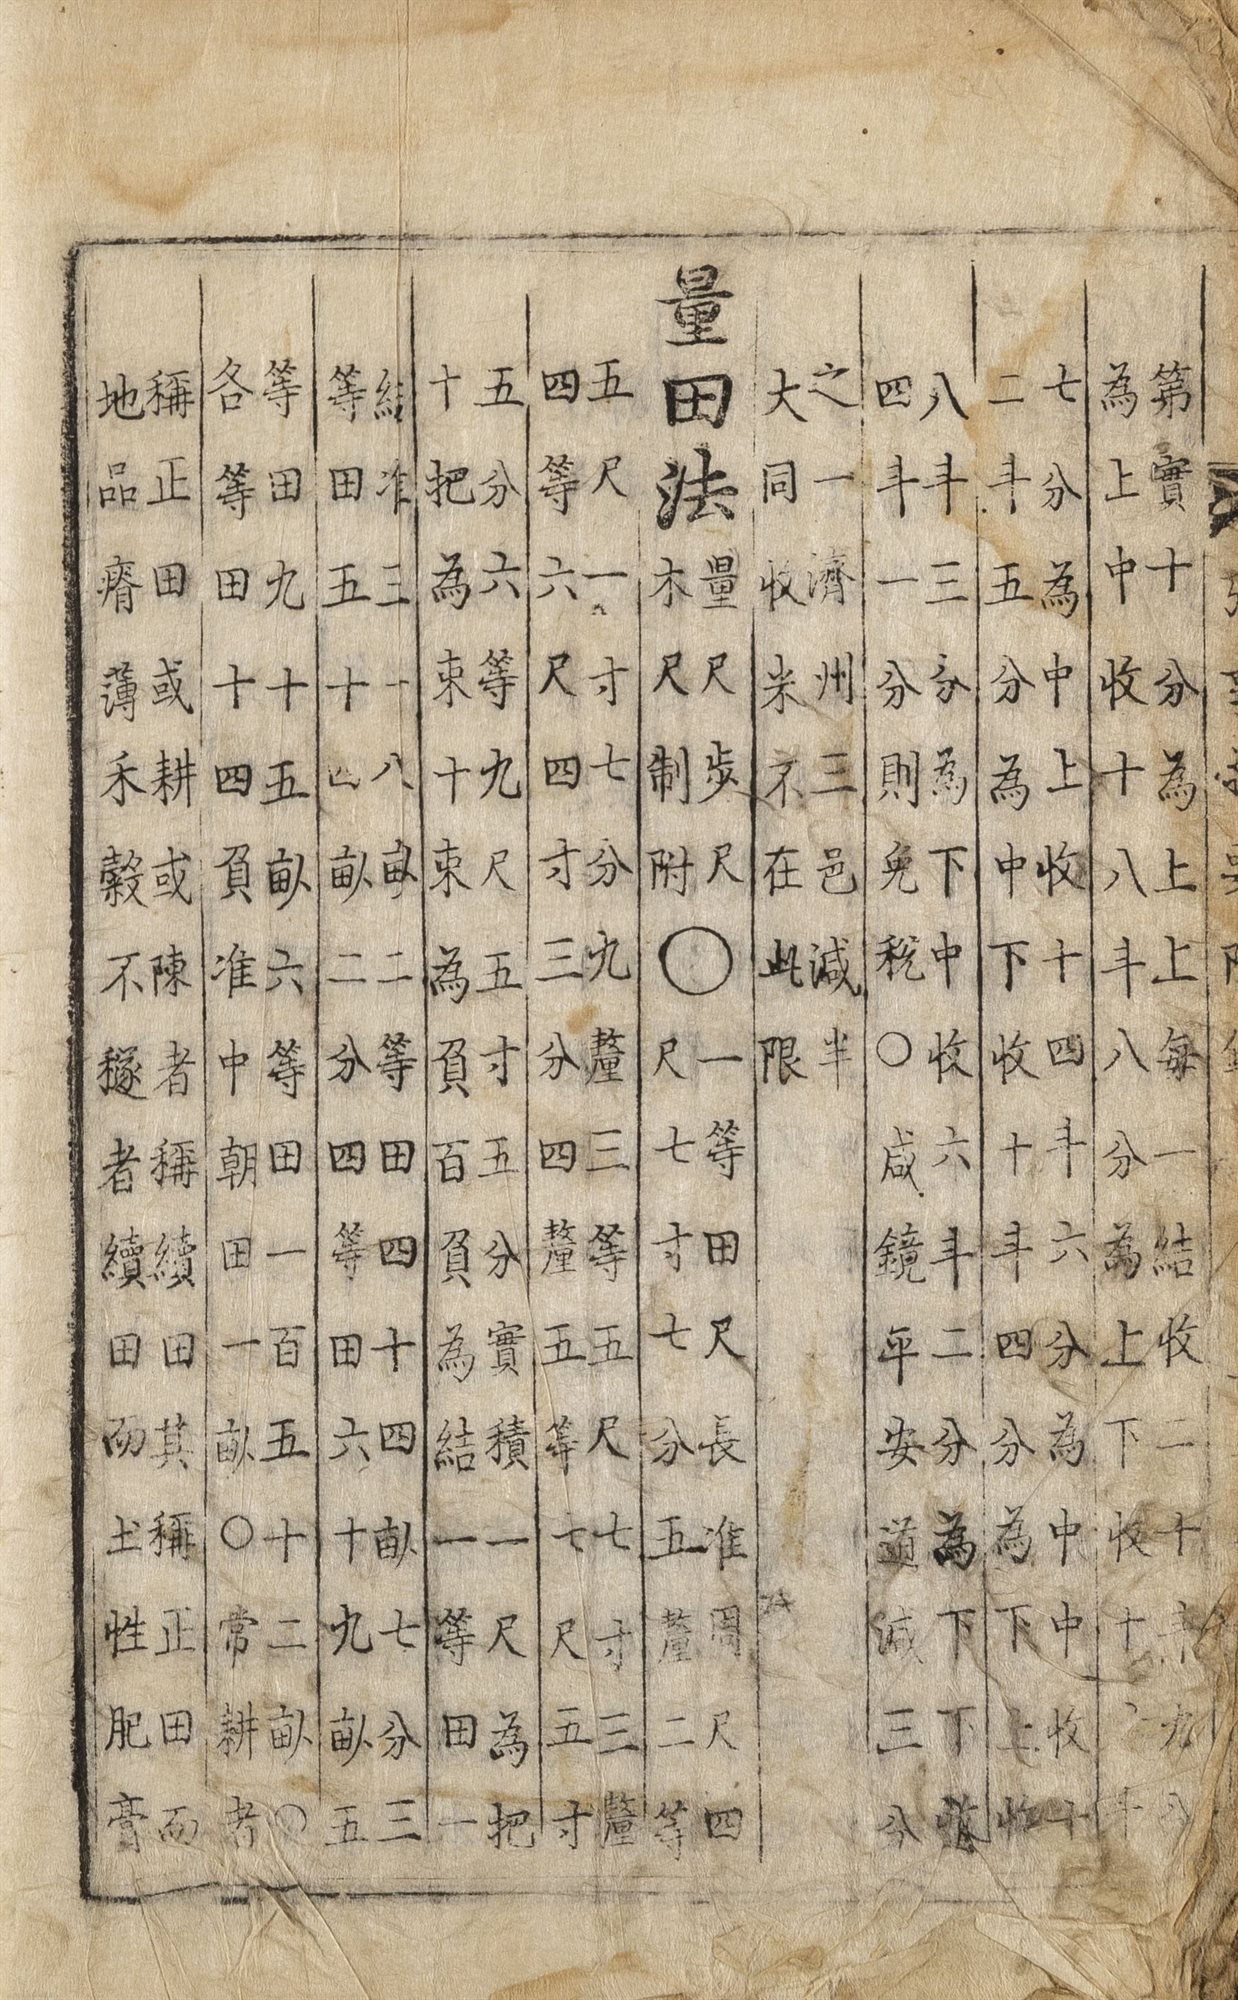 第實十分為上上每一結收二十斗九分
為上中收十八斗八分為上下收十六斗
七分為中上收十四斗六分為中中收十
二斗五分為中下收十斗四分為下上收
八斗三分為下中收六斗二分為下下收
四斗一分則免稅○咸鏡平安道減三分
之一濟州三邑減半
大同收米不在此限
量田法
量尺步尺
木尺制附
○
一等田尺長准周尺四
尺七寸七分五釐二等
五尺一寸七分九釐三等五尺七寸三釐
四等六尺四寸三分四釐五等七尺五寸
五分六等九尺五寸五分實積一尺為把
十把為束十束為負百負為結一等田一
結准三十八畝二等田四十四畝七分三
等田五十四畝二分四等田六十九畝五
等田九十五畝六等田一百五十二畝○
各等田十四負准中朝田一畝○常耕者
稱正田或耕或陳者稱續田其稱正田而
地品瘠薄禾穀不穟者續田而土性肥膏